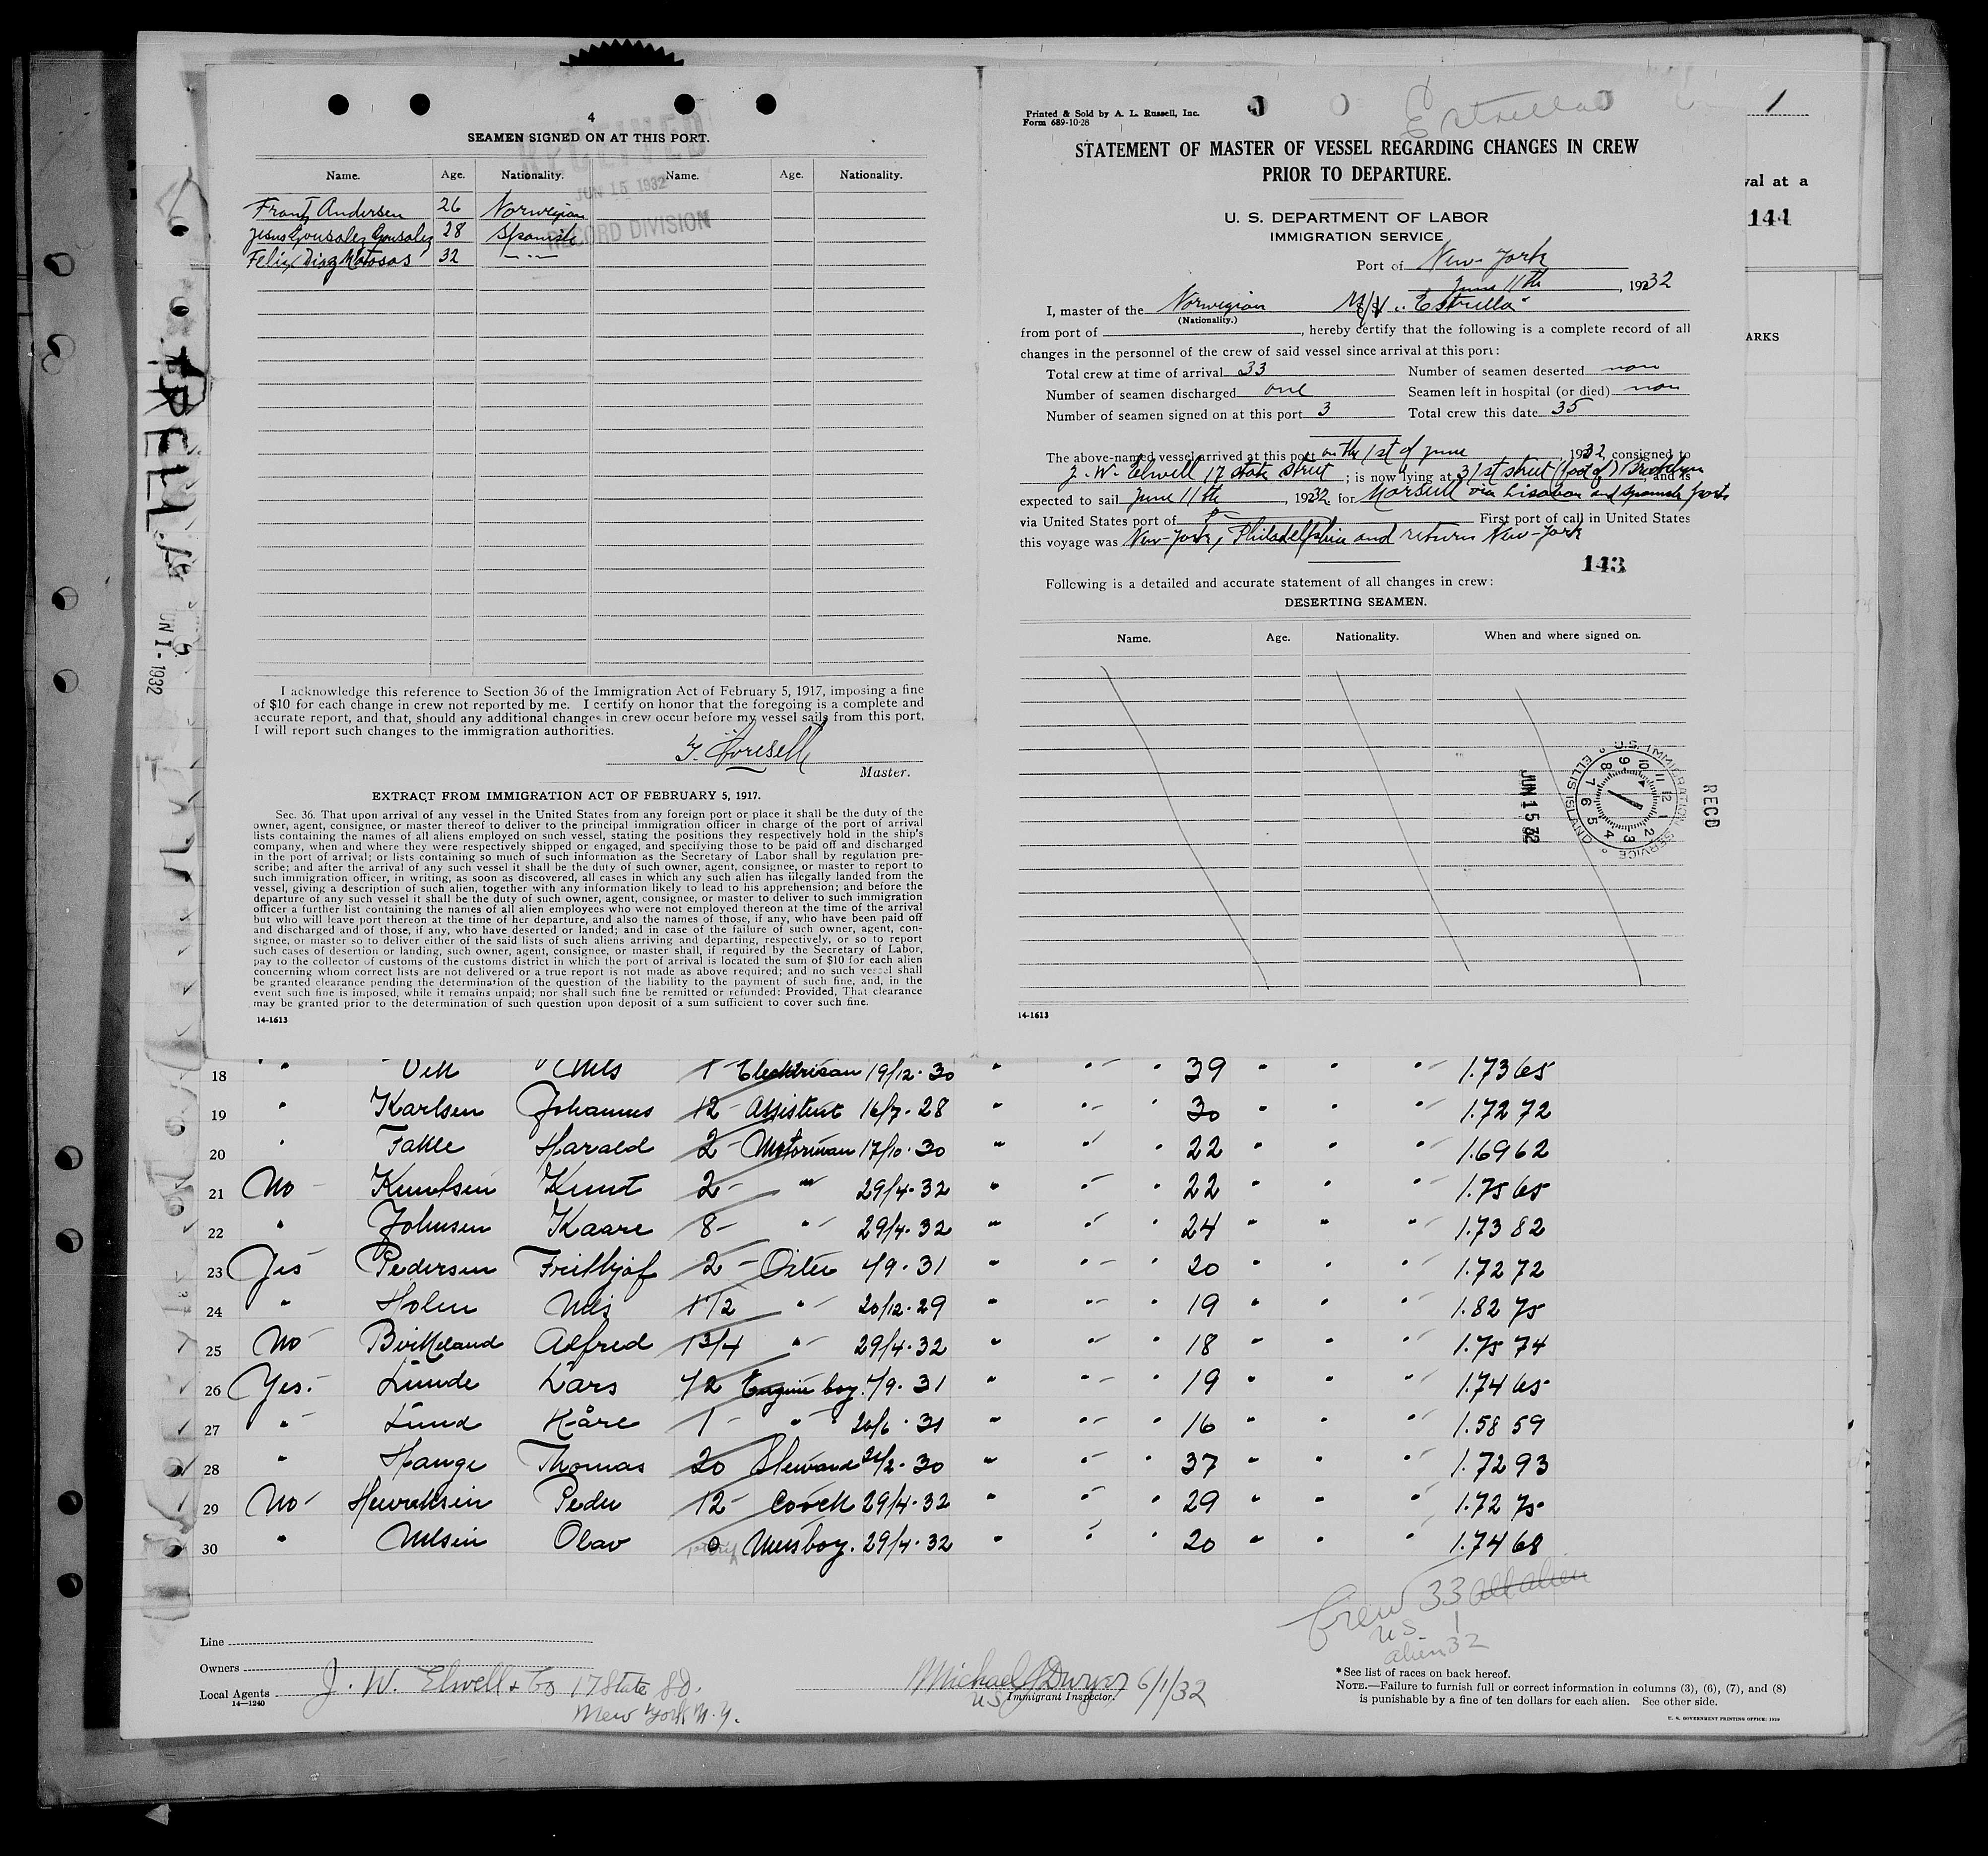 4
SEAMEN SIGNED ON AT THIS PORT.
RECEIVED
JUN 15 1932
RECORD DIVISION
Name. Age. Nationality. Name. Age. Nationality.
Frantz Andersen 26 Norwegian
Jesus Gonsalez Gonsalez 28 Spanish
Felix Diaz Matosas 32 — " —
I acknowledge this reference to Section 36 of the Immigration Act of February 5, 1917, imposing a fine
of $10 for each change in crew not reported by me. I certify on honor that the foregoing is a complete and
accurate report, and that, should any additional changes in crew occur before my vessel sails from this port,
I will report such changes to the immigration authorities.
Master.
EXTRACT FROM IMMIGRATION ACT OF FEBRUARY 5, 1917.
Sec. 36. That upon arrival of any vessel in the United States from any foreign port or place it shall be the duty of the
owner, agent, consignee, or master thereof to deliver to the principal immigration officer in charge of the port of arrival
lists containing the names of all aliens employed on such vessel, stating the positions they respectively hold in the ship's
company, when and where they were respectively shipped or engaged, and specifying those to be paid off and discharged
in the port of arrival; or lists containing so much of such information as the Secretary of Labor shall by regulation pre-
scribe; and after the arrival of any such vessel it shall be the duty of such owner, agent, consignee, or master to report to
such immigration officer, in writing, as soon as discovered, all cases in which any such alien has illegally landed from the
vessel, giving a description of such alien, together with any information likely to lead to his apprehension; and before the
departure of any such vessel it shall be the duty of such owner, agent, consignee, or master to deliver to such immigration
officer a further list containing the names of all alien employees who were not employed thereon at the time of the arrival
but who will leave port thereon at the time of her departure, and also the names of those, if any, who have been paid off
and discharged and of those, if any, who have deserted or landed; and in case of the failure of such owner, agent, con-
signee, or master so to deliver either of the said lists of such aliens arriving and departing, respectively, or so to report
such cases of desertion or landing, such owner, agent, consignee, or master shall, if required by the Secretary of Labor,
pay to the collector of customs of the customs district in which the port of arrival is located the sum of $10 for each alien
concerning whom correct lists are not delivered or a true report is not made as above required; and no such vessel shall
be granted clearance pending the determination of the question of the liability to the payment of such fine, and, in the
event such fine is imposed, while it remains unpaid; nor shall such fine be remitted or refunded: Provided, That clearance
may be granted prior to the determination of such question upon deposit of a sum sufficient to cover such fine.
14-1613
Printed & Sold by A. L. Russell, Inc.
Form 689-10-28
Estrella
STATEMENT OF MASTER OF VESSEL REGARDING CHANGES IN CREW
PRIOR TO DEPARTURE.
U. S. DEPARTMENT OF LABOR
IMMIGRATION SERVICE
Port of New-York
June 11th, 1932
I, master of the Norwegian M/V "Estrella"
(Nationality.)
from port of , hereby certify that the following is a complete record of all
changes in the personnel of the crew of said vessel since arrival at this port:
Total crew at time of arrival 33 Number of seamen deserted non
Number of seamen discharged one Seamen left in hospital (or died) non
Number of seamen signed on at this port 3 Total crew this date 35
The above-named vessel arrived at this port on the 1st of June 1932, consigned to
J. W. Elwell 17 State Street; is now lying at 31st street (foot of) Brooklyn, and is
expected to sail June 11th, 1932, for Marseill via Lisabon and Spanish ports
via United States port of First port of call in United States
this voyage was New-York, Philadelphia and return New-York
143
Following is a detailed and accurate statement of all changes in crew:
DESERTING SEAMEN.
Name. Age. Nationality. When and where signed on.
JUN 15 32
U.S. IMMIGRATION SERVICE ELLIS ISLAND
RECD
14-1613
1
val at a
144
ARKS
JUN 1 - 1932
18 " Nils 1 Elecktrican 19/12-30 " " " 39 " " " 1.73 65
19 " Karlsen Johannes 12 - Assistent 16/7-28 " " " 30 " " " 1.72 72
20 " Harald 2 - Motorman 17/10-30 " " " 22 " " " 1.69 62
21 No Knutsen Knut 2 - " 29/4-32 " " " 22 " " " 1.75 65
22 " Johnsen Kaare 8 - " 29/4-32 " " " 24 " " " 1.73 82
23 Yes Pedersen Frithjof 2 - Oiler 4/9-31 " " " 20 " " " 1.72 72
24 " Holen Nils 1 1/2 " 20/12-29 " " " 19 " " " 1.82 75
25 No Birkeland Alfred 1 3/4 " 29/4-32 " " " 18 " " " 1.75 74
26 Yes. Lunde Lars 1/2 Engine boy. 4/9-31 " " " 19 " " " 1.74 65
27 " Lund Kåre 1 - " 20/6-31 " " " 16 " " " 1.58 59
28 " Hauge Thomas 20 Steward 21/2-30 " " " 37 " " " 1.72 93
29 No Henriksen Peder 12 - Coock 29/4-32 " " " 29 " " " 1.72 75
30 " Nilsen Olav 0 Messboy. 29/4-32 " " " 20 " " " 1.74 68
Crew 33 all alien
US 1
alien 32
Line
Owners
Local Agents J. W. Elwell & Co 17 State St.
New York N.Y.
14—1240
Michael J Dwyer 6/1/32
US Immigrant Inspector.
*See list of races on back hereof.
NOTE.—Failure to furnish full or correct information in columns (3), (6), (7), and (8)
is punishable by a fine of ten dollars for each alien. See other side.
U. S. GOVERNMENT PRINTING OFFICE: 1930